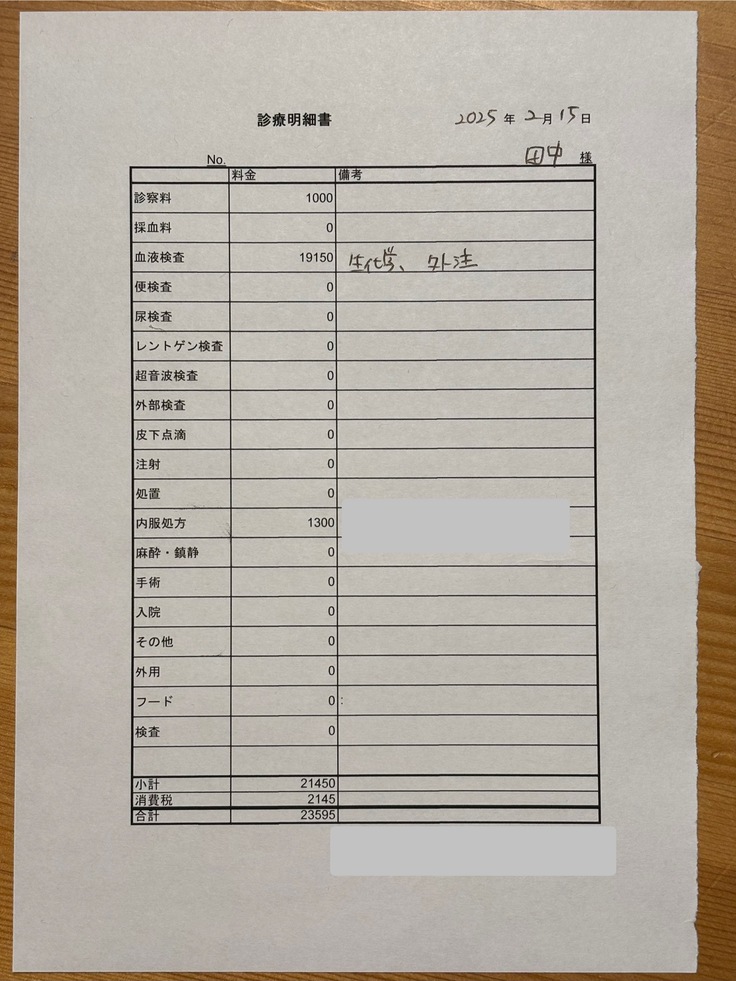 診療明細書 2025 年 2 月 15 日
No. 田中 様
料金 備考
診察料 1000
採血料 0
血液検査 19150 生化学、外注
便検査 0
尿検査 0
レントゲン検査 0
超音波検査 0
外部検査 0
皮下点滴 0
注射 0
処置 0
内服処方 1300
麻酔・鎮静 0
手術 0
入院 0
その他 0
外用 0
フード 0 :
検査 0
小計 21450
消費税 2145
合計 23595